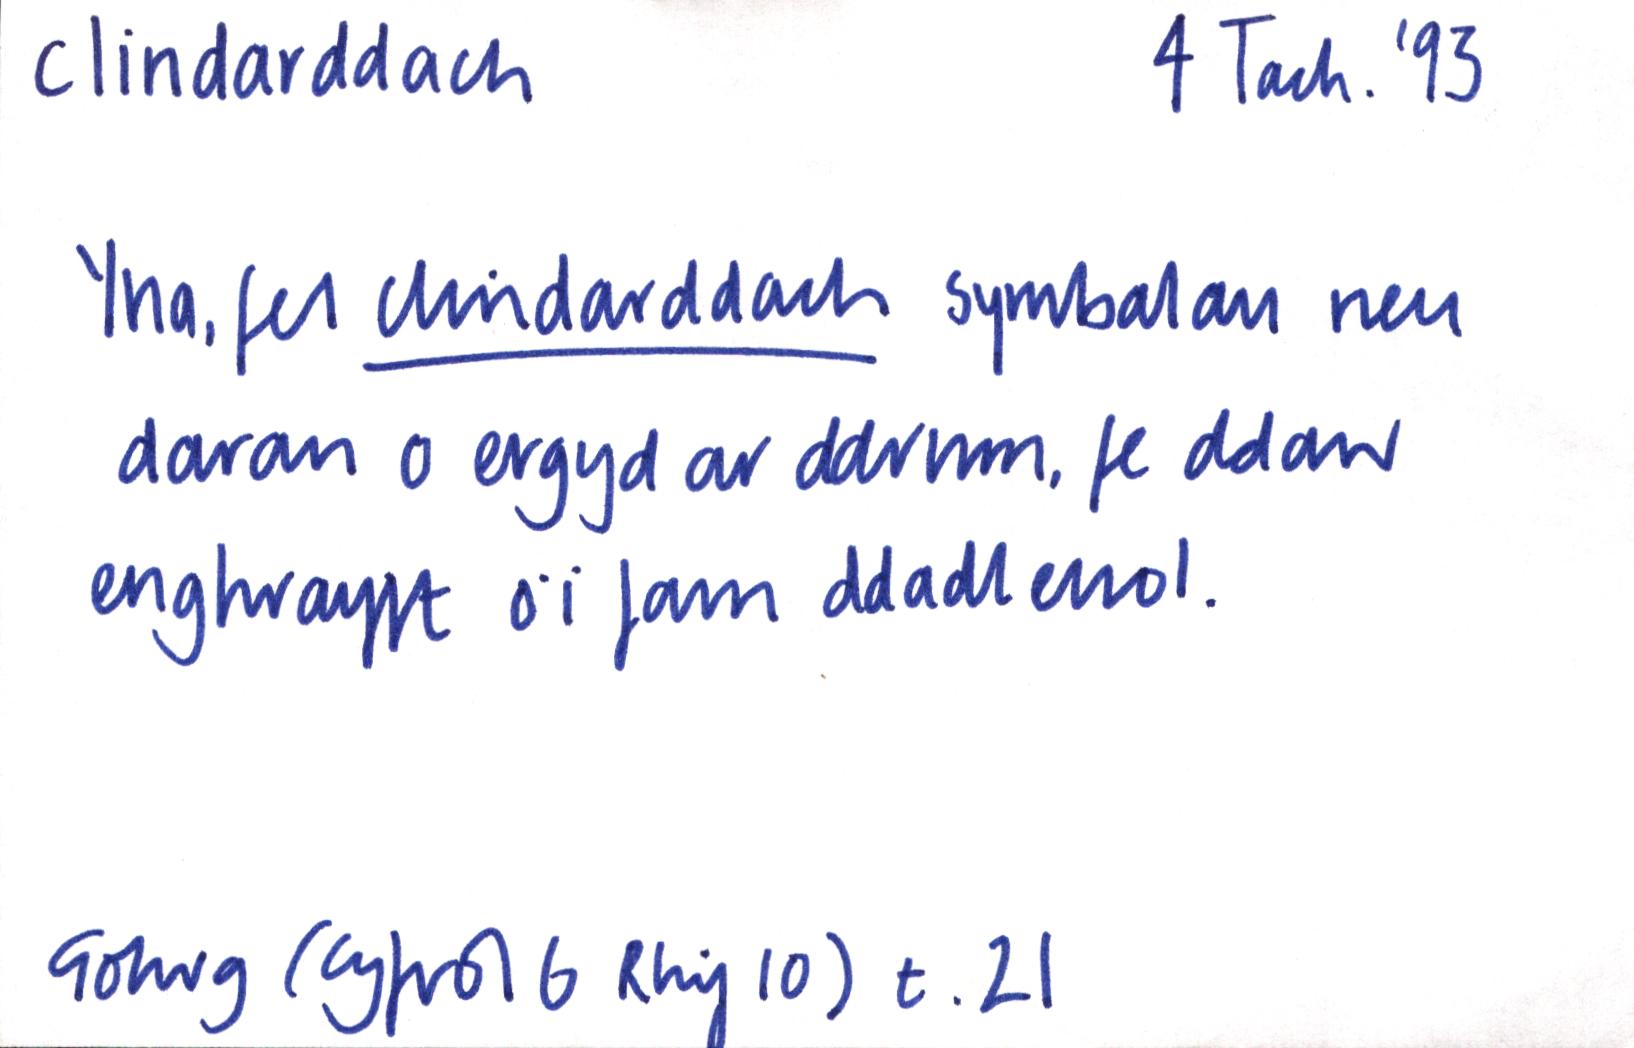 clindarddach 4 Tach. '93
Yna, fel clindarddach symbalau neu
daran o ergyd ar ddrwm, fe ddaw
enghraifft o'i farn ddadlennol.
Golwg (Cyfrol 6 Rhif 10) t. 21